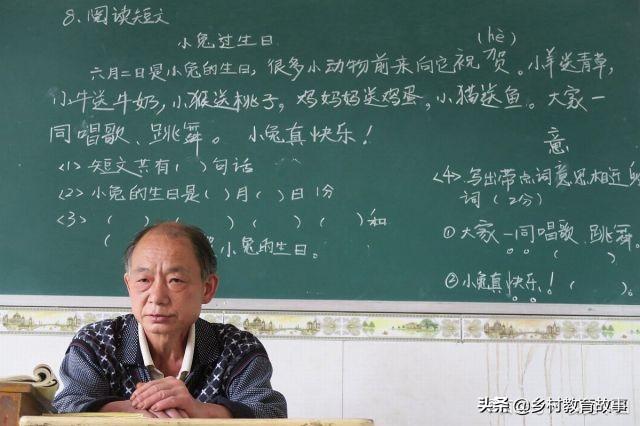 8、阅读短文
小兔过生日
(hè)
六月二日是小兔的生日，很多小动物前来向它祝贺。小羊送青草，
小牛送牛奶，小猴送桃子，鸡妈妈送鸡蛋，小猫送鱼。大家一
同唱歌、跳舞。小兔真快乐！
<1>短文共有（ ）句话
<2>小兔的生日是（ ）月（ ）日 1分
<3>（ ）（ ）（ ）（ ）（ ）和
（ 小兔的生日。
意
<4>写出带点词意思相近的
词（2分）
①大家一同唱歌、跳舞。
（ ）
②小兔真快乐！（ ）。
头条 @乡村教育故事